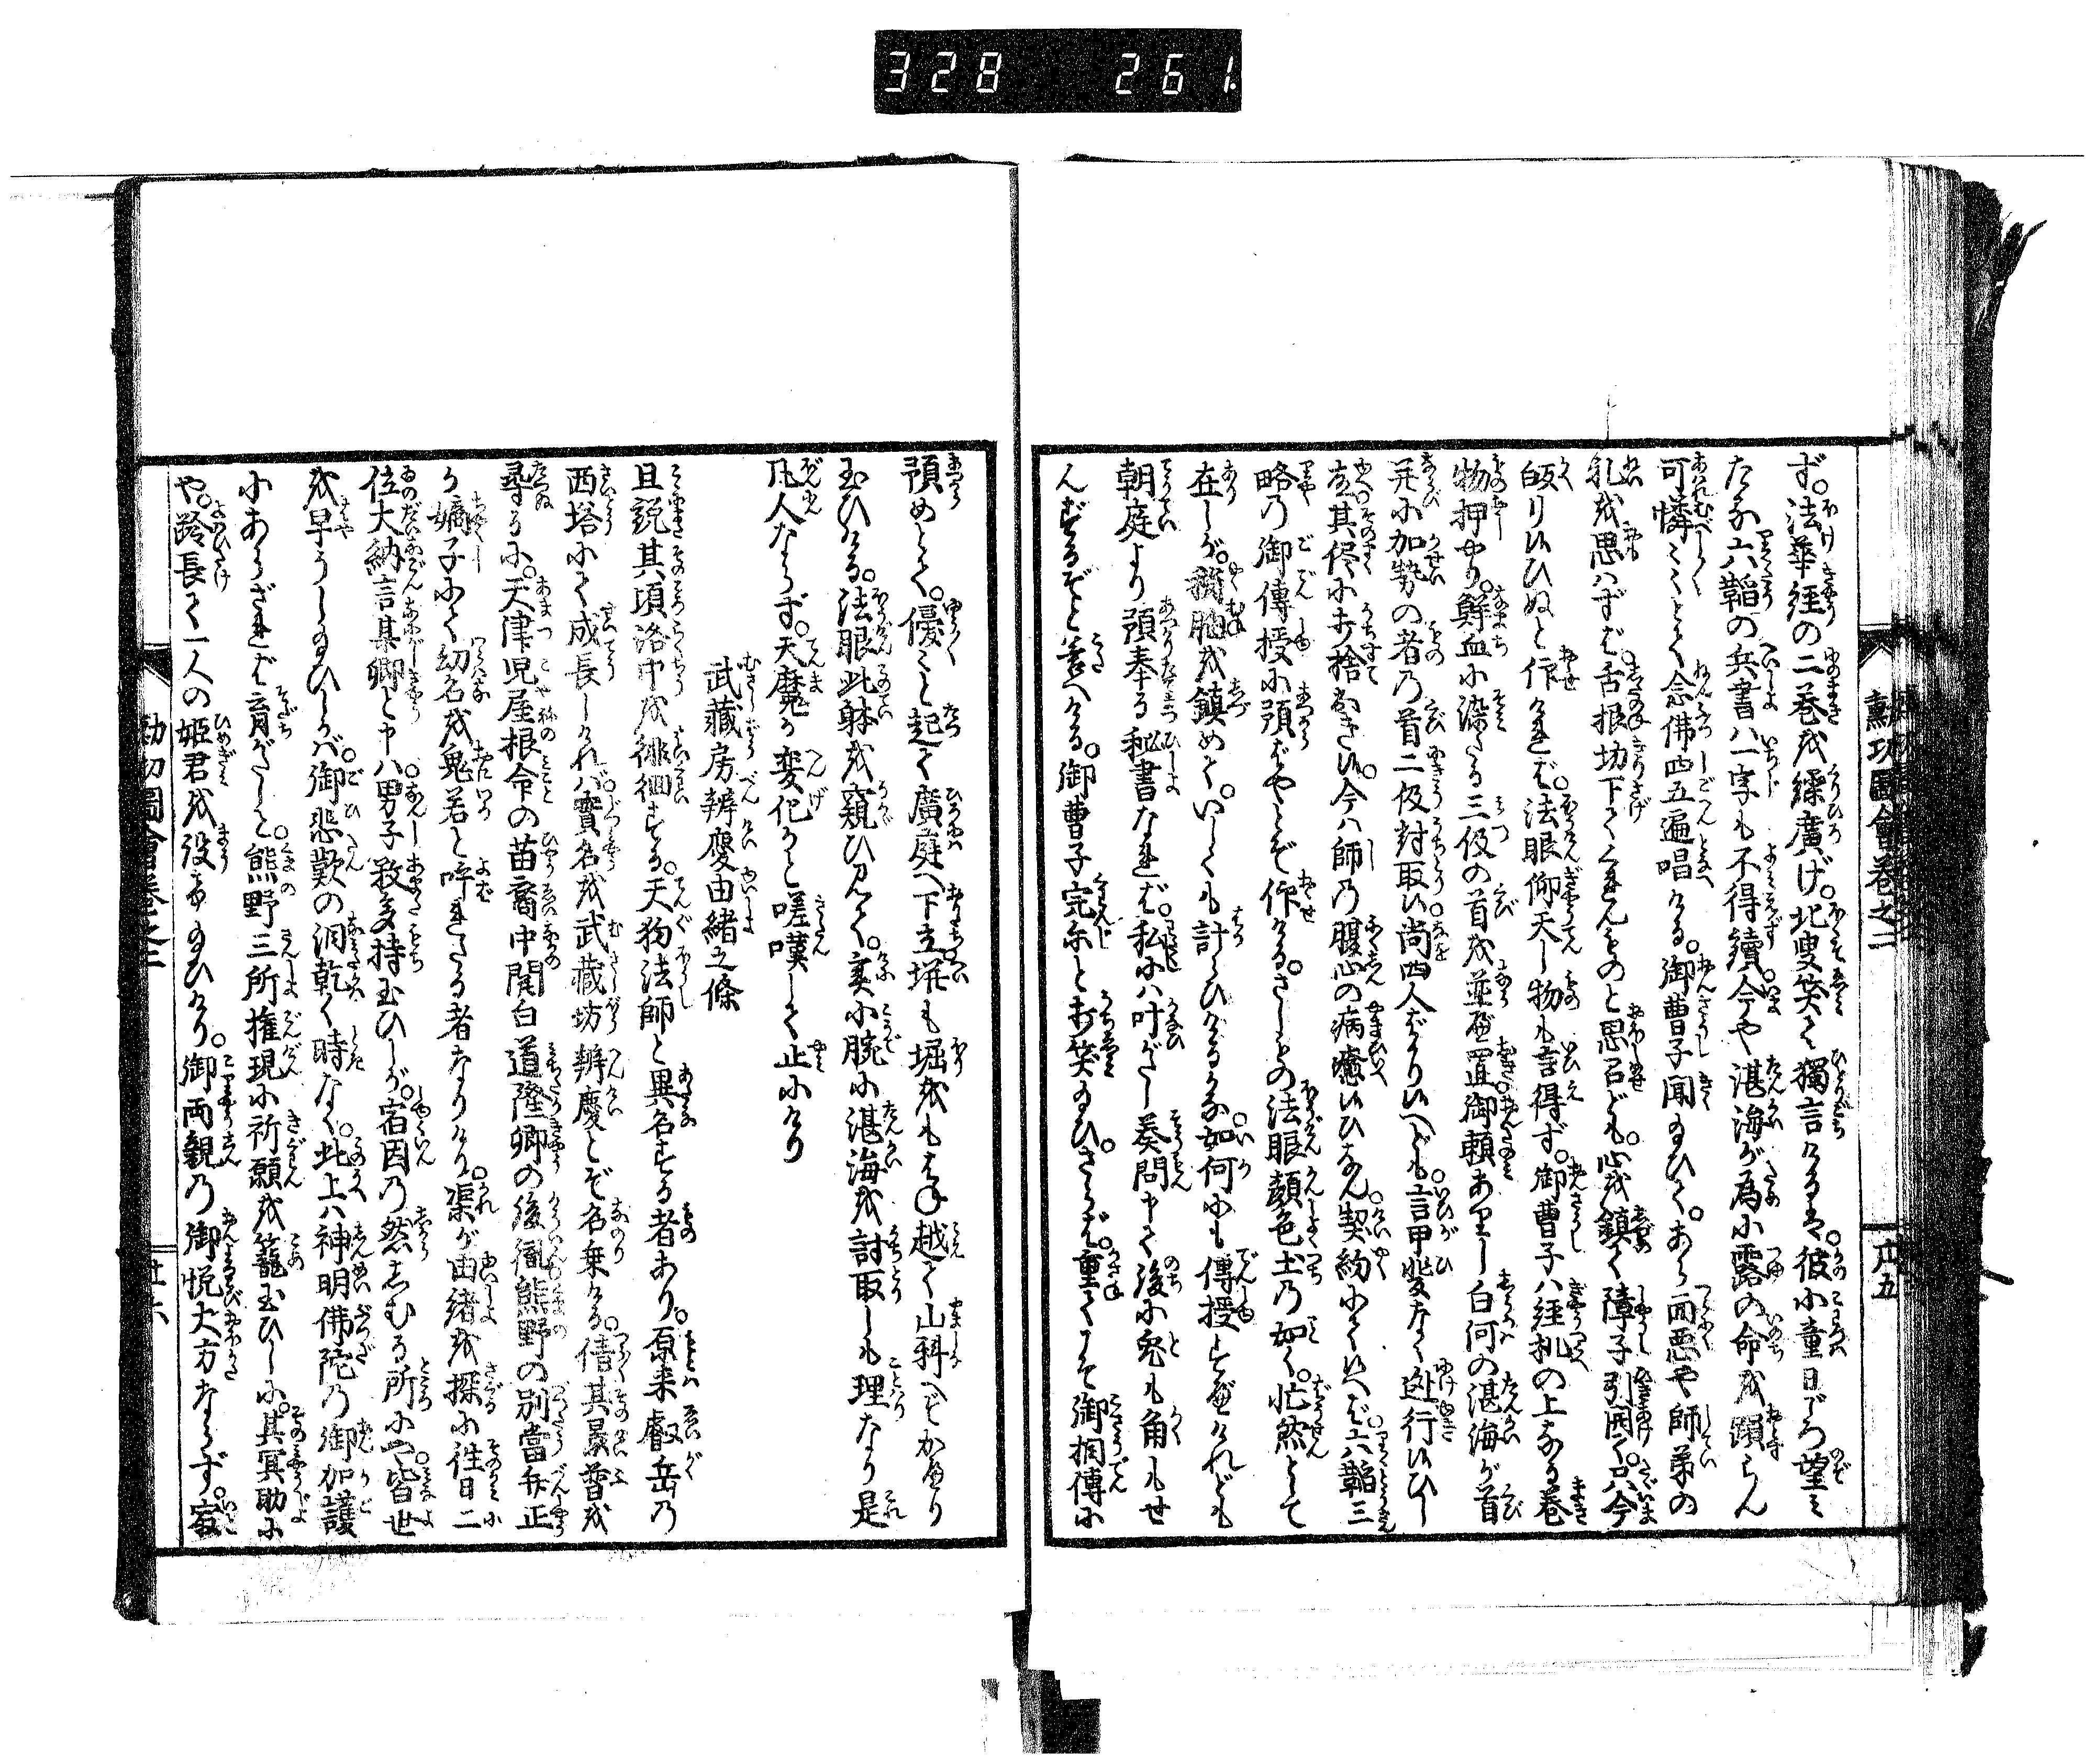 328 261
勲功圖會巻之二
廿五
ず。法華経の二巻を繰廣げ。北叟笑て獨言けるは。彼小童日ごろ望み
たる六韜の兵書ハ一字も不得續今や湛海が為小露の命を隕らん
可憐〻〻とて念佛四五遍唱ける。御曹子聞給ひて。あら面悪や師弟の
礼を思ハずバ。舌根切下てくれんものと思召ども。心を鎮て障子引開て。只今
皈り候ひぬと仰ければ。法眼仰天し物も言得ず。御曹子ハ経机の上なる巻
物押やり。鮮血小染たる三級の首を並置。御頼ありし白河の湛海が首
并小加勢の者乃首二級討取ひ尚四人ばかり候へども。言甲斐なく迯行候ひし
故其侭小打捨おき候。今ハ師乃腹心の病癒候ひなん契約小て候へば。六韜三
略乃御傳授小預ばやとぞ仰ける。さしもの法眼顔色土乃如く。忙然として
在しが。稍胸を鎮めて。いしくも計らひけるかな如何小も傳授すべけれども
朝庭より預奉る秘書なれば。私小ハ叶がたし奏問申て後小兎も角もせ
んずるぞと答へける。御曹子完尓と打笑給ひ。さらば。重てこそ御相傳小
預めとて。優〻と起て廣庭へ下立塀も堀をもはね越て山科へぞかへり
玉ひける。法眼此躰を窺ひ見て。実小腕小湛海を討取しも理なり是
凡人ならず。天魔か変化かと嗟嘆して止小けり
武藏房辨慶由緒之條
且説其項洛中を徘徊する。天狗法師と異名する者あり。原来叡岳乃
西塔小て成長しけれバ。實名を武藏坊辨慶とぞ名乗ける。倩其曩昔を
尋る小。天津児屋根命の苗裔中関白道隆卿の後胤熊野の別當弁正
か嫡子小て幼名を鬼若と呼れたる者なりけり。渠が由緒を探小徃日二
位大納言某卿と申ハ男子数多持玉ひしが。宿因乃然しむる所小や皆世
を早うし給ひしかバ。御悲歎の涙乾く時なく。此上ハ神明佛陀乃御加護
小あらざれば育がたしと。熊野三所権現小祈願を籠玉ひし小。其冥助小
や。齢長て一人の姫君を設給ひけり。御両親乃御悦大方ならず。寂
勲功圖會巻之二
廿六